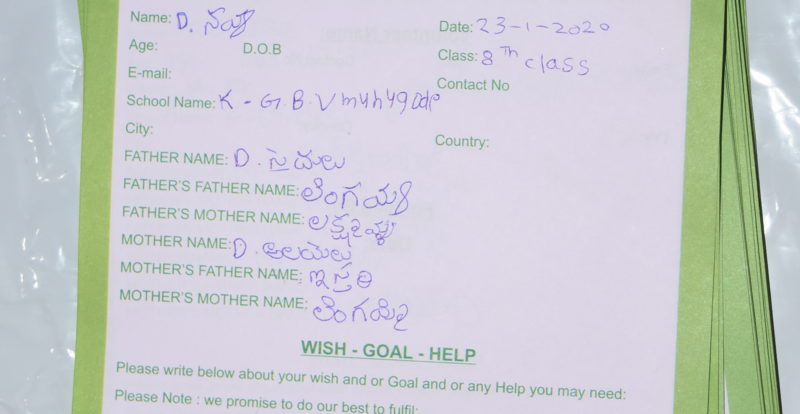 Name: D. నవ్య
Date: 23-1-2020
Age: D.O.B
Class: 8Th class
E-mail:
Contact No
School Name: K - G. B. V
City:
Country:
FATHER NAME: D. సైదులు
FATHER'S FATHER NAME: లింగయ్య
FATHER'S MOTHER NAME:
MOTHER NAME: D.
MOTHER'S FATHER NAME:
MOTHER'S MOTHER NAME:
WISH - GOAL - HELP
Please write below about your wish and or Goal and or any Help you may need:
Please Note : we promise to do our best to fulfil: